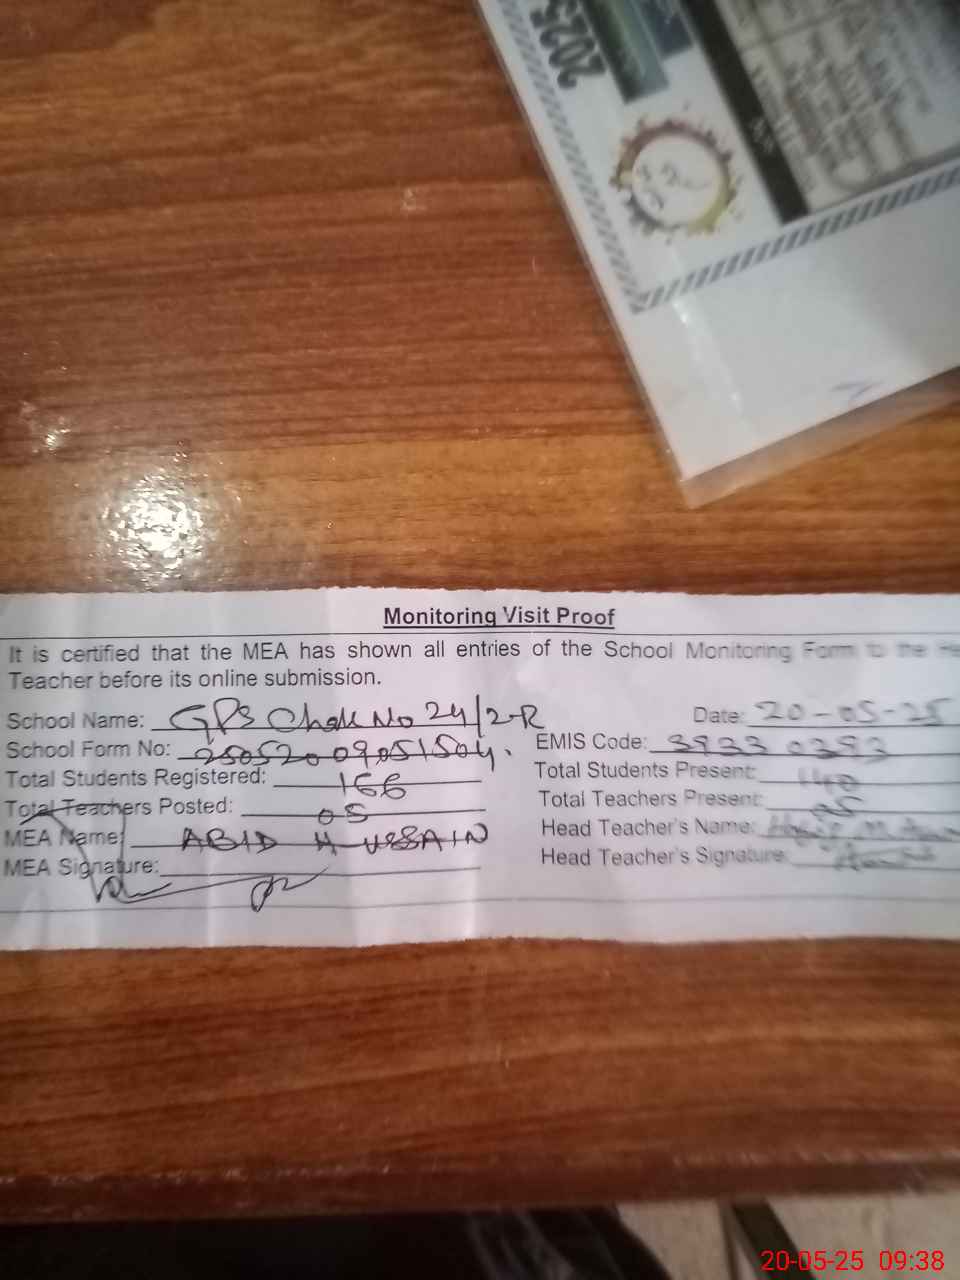 2025
Monitoring Visit Proof
It is certified that the MEA has shown all entries of the School Monitoring Form to the He
Teacher before its online submission.
School Name: GPS Chak No 24/2-R Date: 20-05-25
School Form No: 25052009051504. EMIS Code: 39330393
Total Students Registered: 166 Total Students Present: 140
Total Teachers Posted: 05 Total Teachers Present: 05
MEA Name: ABID HUSSAIN Head Teacher's Name:
MEA Signature: Head Teacher's Signature:
20-05-25 09:38